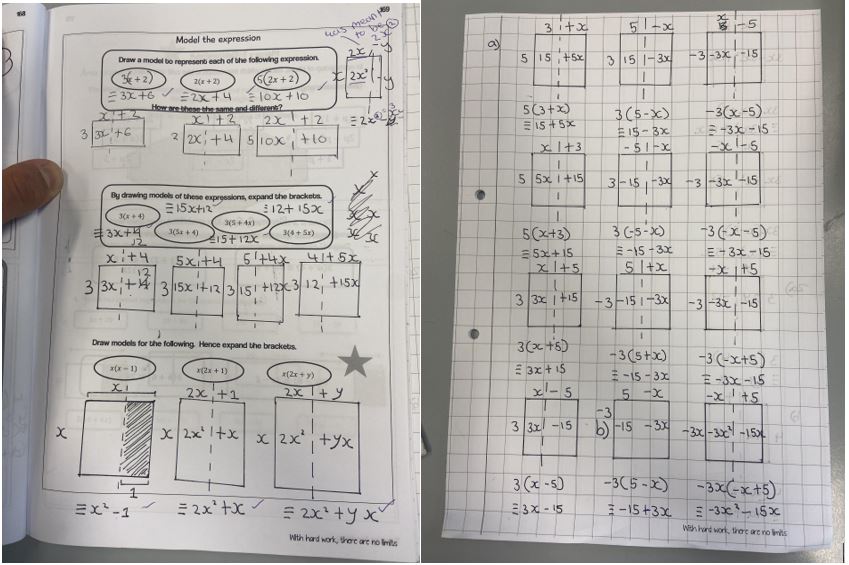 168
169
Model the expression
was meant
to be
2x²
Draw a model to represent each of the following expression.
2x -y
3(x + 2) 2(x + 2) 5(2x + 2)
x 2x² -y
≡ 3x+6 ≡ 2x+4 ≡ 10x+10
How are these the same and different?
x + 2 x + 2 2x + 2
3 3x +6 2 2x +4 5 10x +10
By drawing models of these expressions, expand the brackets.
≡15x+12 ≡12+15x
3(x + 4) 3(5x + 4) 3(5 + 4x) 3(4 + 5x)
≡3x+
12 ≡15+12x
x +4 5x+4 5+4x 4+5x
3 3x +12 3 15x +12 3 15 +12x 3 12 +15x
Draw models for the following. Hence expand the brackets.
x(x − 1) x(2x + 1) x(2x + y)
x 2x +1 2x + y
x x 2x² +x x 2x² +yx
1
≡ x²-1 ≡ 2x²+x ≡ 2x²+yx
With hard work, there are no limits
a)
3 +x 5 -x x -5
5 15 +5x 3 15 -3x -3 -3x -15
5(3+x) 3(5-x) -3(x-5)
≡ 15+5x ≡ 15-3x ≡ -3x-15
x +3 -5 -x -x -5
5 5x +15 3 -15 -3x -3 -3x -15
5(x+3) 3(-5-x) -3(-x-5)
≡ 5x+15 ≡ -15-3x ≡ -3x-15
x +5 5 +x -x +5
3 3x +15 -3 -15 -3x -3 -3x -15
3(x+5) -3(5+x) -3(-x+5)
≡ 3x+15 ≡ -15-3x ≡ -3x-15
x -5 5 -x -x +5
3 3x -15 -3 -15 -3x -3x -3x² -15x
b)
3(x-5) -3(5-x) -3x(-x+5)
≡ 3x-15 ≡ -15+3x ≡ -3x²-15x
With hard work, there are no limits